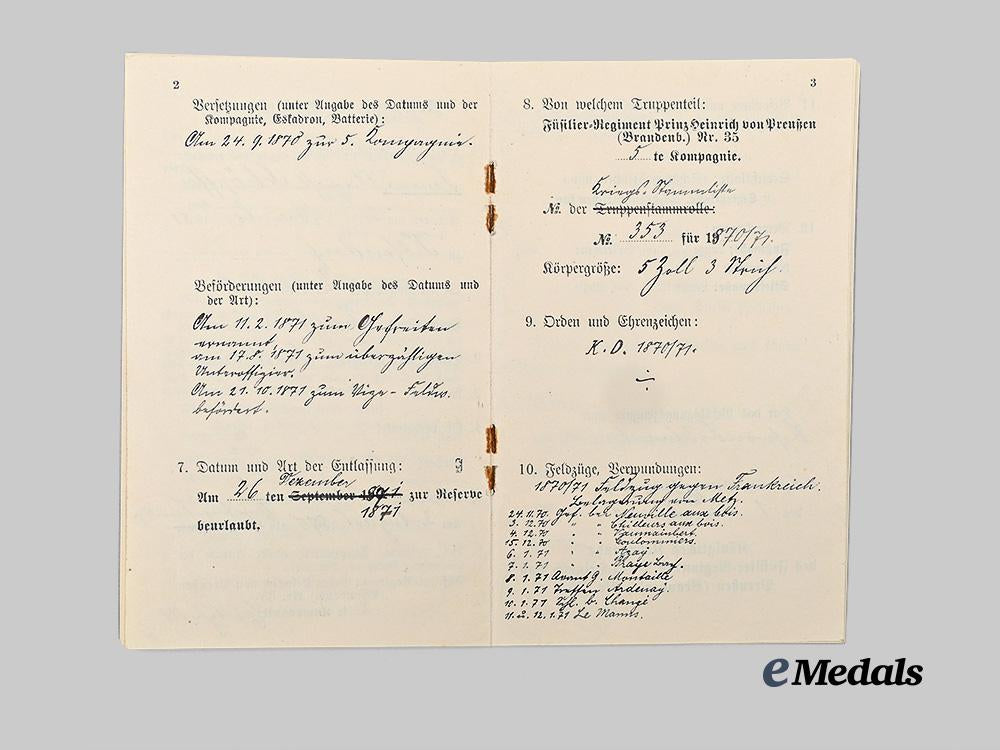 2
Versetzungen (unter Angabe des Datums und der
Kompagnie, Eskadron, Batterie):
Am 24. 9. 1870 zur 5. Kompagnie.
Beförderungen (unter Angabe des Datums und
der Art):
Am 11. 2. 1871 zum Gefreiten
ernannt,
am 17. 8. 1871 zum überzähligen
Unteroffizier.
Am 21. 10. 1871 zum Vize-Feldw.
befördert.
7. Datum und Art der Entlassung:
Dezember
Am 26 ten September 1891 zur Reserve
1871
beurlaubt.
3
8. Von welchem Truppenteil:
Füsilier-Regiment Prinz Heinrich von Preußen
(Brandenb.) Nr. 35
5 te Kompagnie.
Kriegs-Stammliste
No. der Truppenstammrolle:
No. 353 für 1870/71.
Körpergröße: 5 Zoll 3 Strich.
9. Orden und Ehrenzeichen:
K. D. 1870/71.
10. Feldzüge, Verwundungen:
1870/71 Feldzug gegen Frankreich.
Belagerung von Metz.
24. 11. 70. Gef. bei Neuville aux bois.
3. 12. 70 " " Chilleurs aux bois.
4. 12. 70 " " Vaumainbert.
15. 12. 70 " " Coulommiers.
6. 1. 71 " " Azay
7. 1. 71 " "
8. 1. 71 Avant G. Montaille
9. 1. 71 Treffen Ardenay.
10. 1. 71 b. Changé
11. u. 12. 1. 71 Le Manns.
eMedals